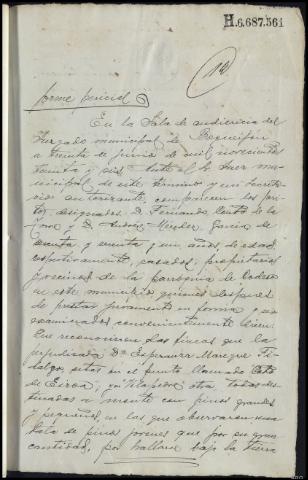 H.6.687.561
forme pericial
En la Sala de audiencia del
Juzgado municipal de Boqueijón
a treinta de junio de mil novecientos
treinta y seis. Ante el Sr Juez mu-
nicipal de este término y mi Secreta-
rio autorizante, comparecen los peri-
tos designados D. Fernando Couto de la
Torre y D. Andrés Mender García de
y un años, de edad
respectivamente, casados, propietarios
y vecinos de la parroquia de
en este municipio, quienes después
de prestar juramento en forma y
examinados convenientemente dicen:
Que reconocieron las fincas que la
perjudicada Dª Esperanza Mareque Fi-
dalgo, sitas en el punto llamado Coto
de otra, todas des-
tinadas a monte con pinos grandes
y pequeños en las que observaron una
tala de pinos jóvenes que por su gran
cantidad, por hallarse bajo la tierra